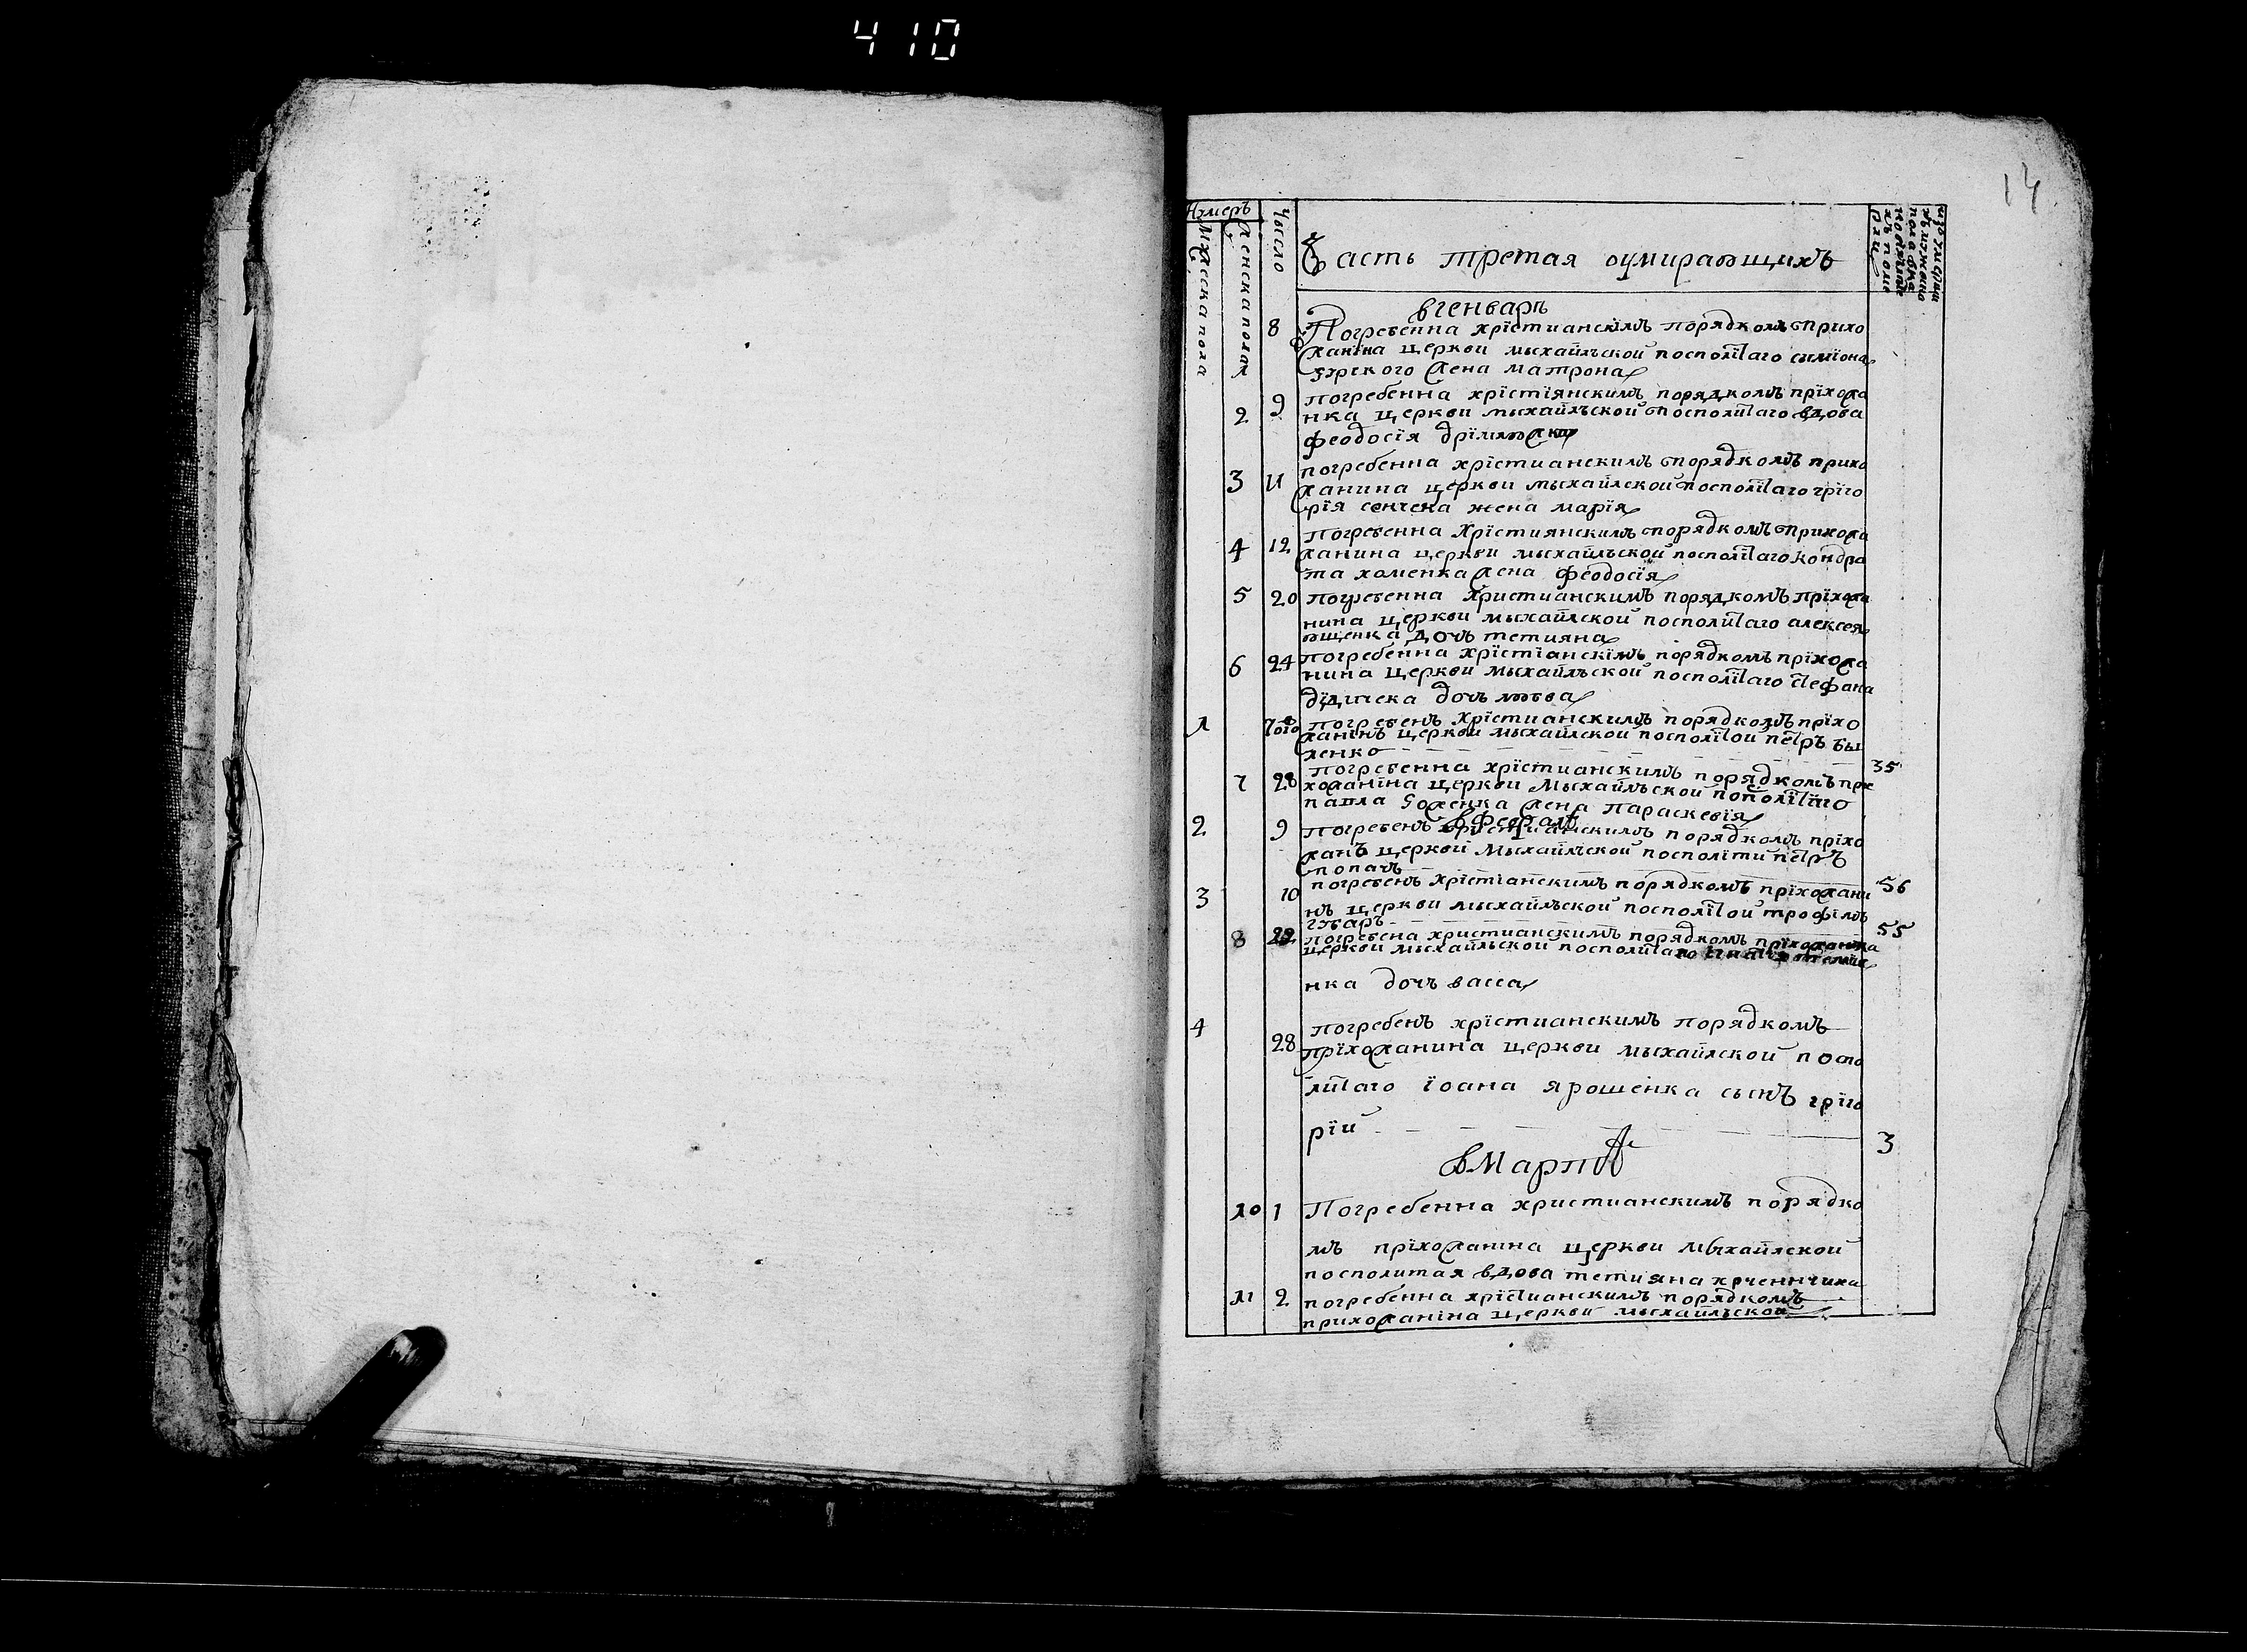 410
14
Нумеръ
Мужеска пола
Женска пола
Число
Часть третая оумирающихъ
вгенваръ
8 Погребенна хрїстианскїмъ порядкомъ прихо
жанїна церкви михайлъской посполїтаго симїона
1 жена матрона
9 погребенна хрїстїянскимъ порядкомъ прїхожа
2 нка церкви михайлъской посполїтаго вдова
феодосїя
погребенна хрїстианскимъ порядкомъ прихо
3 11 жанина церкви михайлской посполїтаго грїго
рїя сенчена жена марїя
Погребенна Хрїстиянскимъ порядкомъ прихожа
4 12 жанина церкви михайлъской посполїтаго кондра
та хоменка жена феодосїя
5 20 погребенна Христианскимъ порядкомъ прїхожа
нина церкви михайлской посполитаго алексея
ющенка дочъ тетияна
6 24 погребенна хрїстїанскїмъ порядкомъ прїхожа
нина церкви михайлъской посполїтаго стефана
дочъ
1 погребенъ хрїстианскимъ порядкомъ прїхо
жанїнъ церкви михайлской посполїтой петръ бы
ленко 35
погребенна хрїстианскимъ порядкомъ при
7 28 хожанїна церкви Михайлъской посполїтаго
павла жена параскевїя
в феврал
2 9 Погребенъ хрїстианскимъ порядкомъ прїхо
жанъ церкви Михайлъской посполїти петръ
попачъ 56
3 10 погребенъ хрїстїанскимъ порядкомъ прїхожани
нъ церкви михайлъской посполїтой трофїмъ
55
8 22 погребена христианскимъ порядкомъ прїхожанина
церкви михайлъской посполїтаго
нка дочъ васса
4 погребенъ хрїстианскимъ порядкомъ
28 прїхожанина церкви михайлской поспо
лїтаго їоана ярошенка сынъ грїго
рїи 3
в Мартѣ
10 1 Погребенна христианскимъ порядко
мъ прїхожанїна церкви михайлской
посполитая вдова тетияна
11 2 погребенна хрїстианскимъ порядкомъ
прихожанїна церкви михайлъской